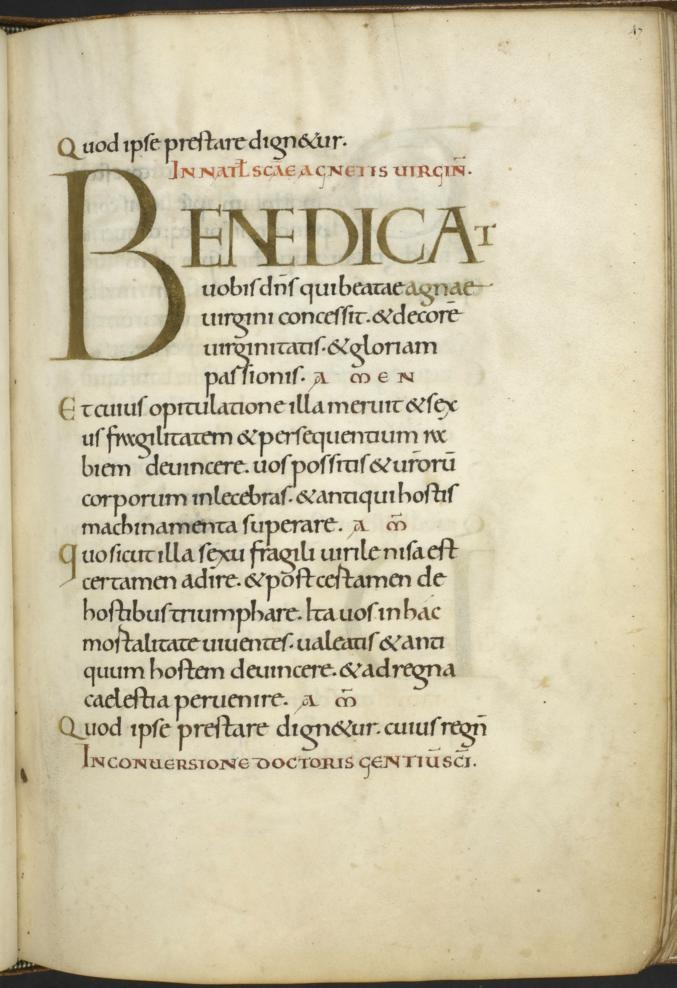 47
Quod ipse prestare dign&ur.
IN NAT̄L SC̄AE AGNETIS UIRGIN̄.
BENEDICAT
uobis dn̄s qui beatae agnae
uirgini concessit. & decorē
uirginitatis. & gloriam
passionis. A M E N
Et cuius opitulatione illa meruit & sex
us fragilitatem & persequentium ra
biem deuincere. uos possitis & ur̄orū
corporum inlecebras. & antiqui hostis
machinamenta superare. A M̄
Quo sicut illa sexu fragili uirile nisa est
certamen adire. & post certamen de
hostibus triumphare. Ita uos in hac
mortalitate uiuentes. ualeatis & anti
quum hostem deuincere. & ad regna
caelestia peruenire. A M̄
Quod ipse prestare dign&ur. cuius regn̄
IN CONUERSIONE DOCTORIS GENTIŪ SC̄I.